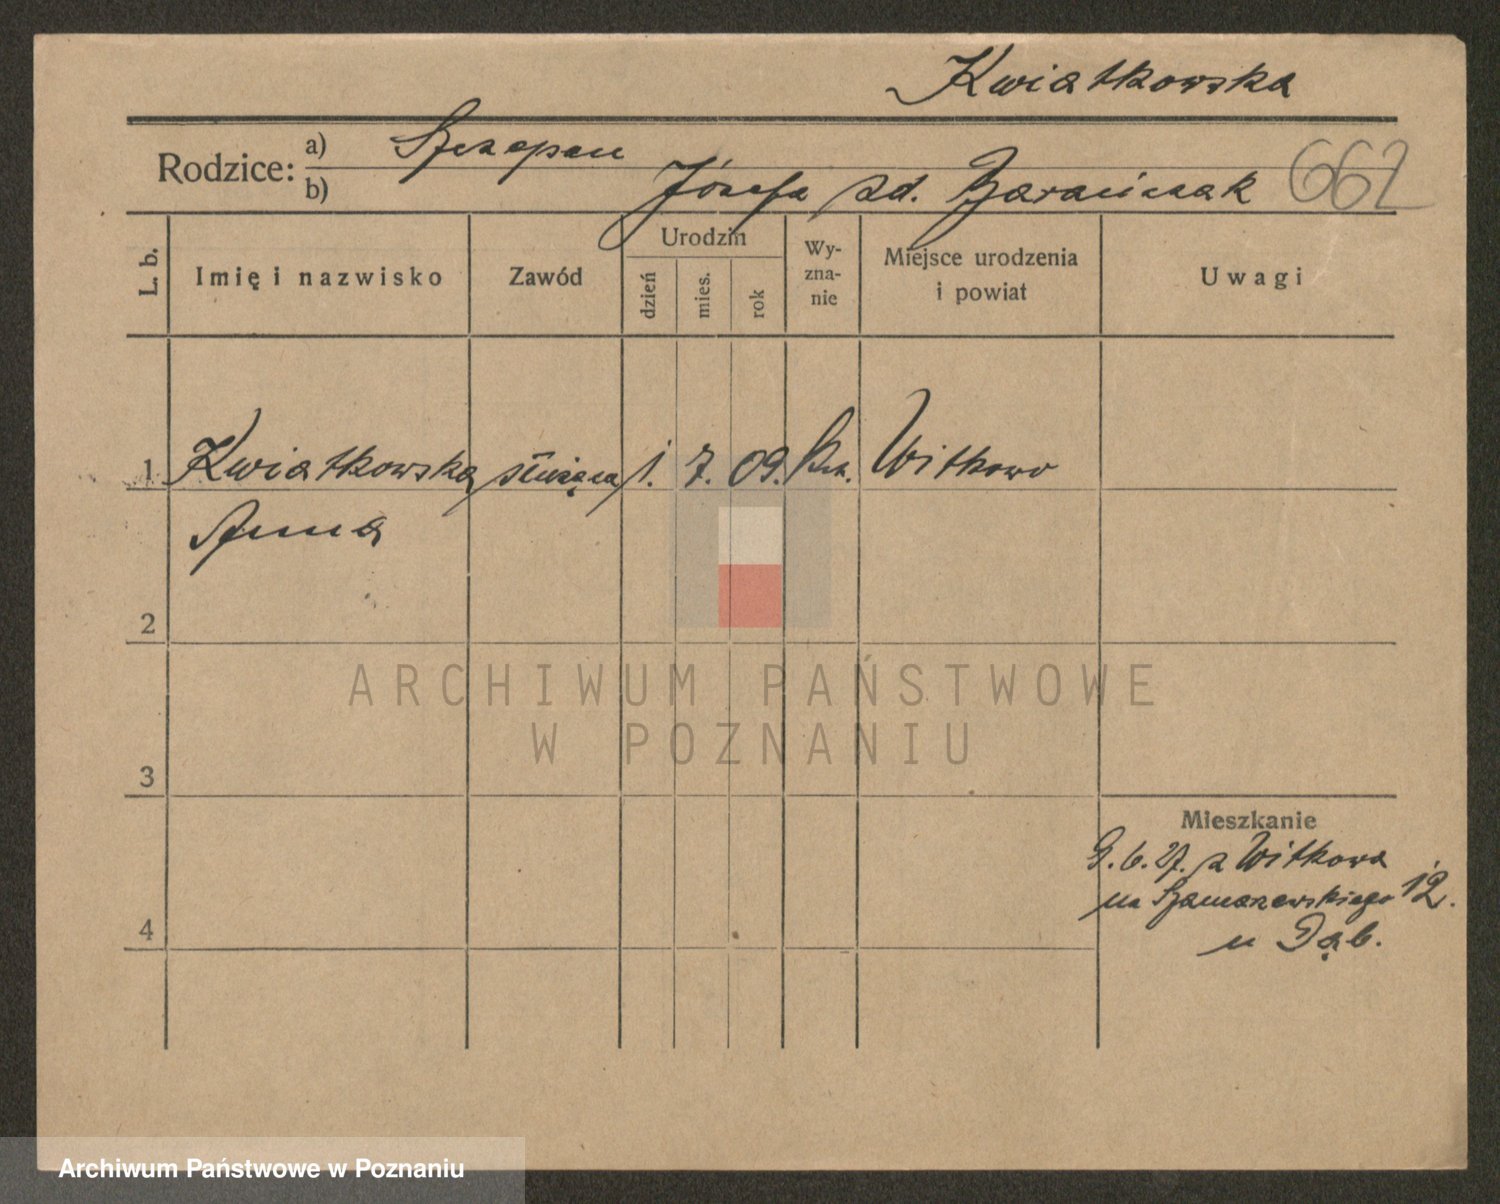 Kwiatkowska
Rodzice: a) Szczepan
b) Józefa zd. Barańczak 662
L. b.
Imię i nazwisko
Zawód
Urodzin
dzień
mies.
rok
Wy-
zna-
nie
Miejsce urodzenia
i powiat
Uwagi
1 Kwiatkowska służąca 1. 7. 09. Witkowo
Anna
2
3
4
Mieszkanie
9. 6. 27. z Witkowa
na Szamarzewskiego 12.
u Dąb.
ARCHIWUM PAŃSTWOWE
W POZNANIU
Archiwum Państwowe w Poznaniu